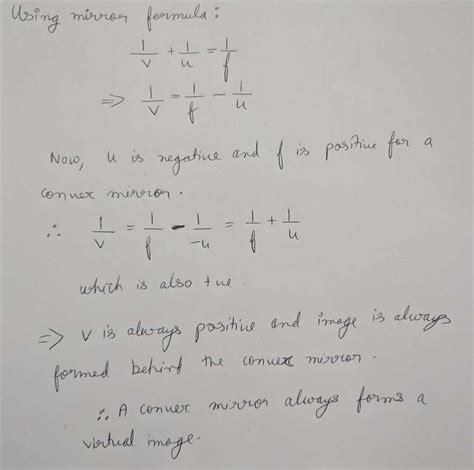 Using mirror formula:
1/v + 1/u = 1/f
=> 1/v = 1/f - 1/u
Now, u is negative and f is positive for a
convex mirror.
∴ 1/v = 1/f - 1/-u = 1/f + 1/u
which is also +ve.
=> v is always positive and image is always
formed behind the convex mirror.
∴ A convex mirror always forms a
virtual image.